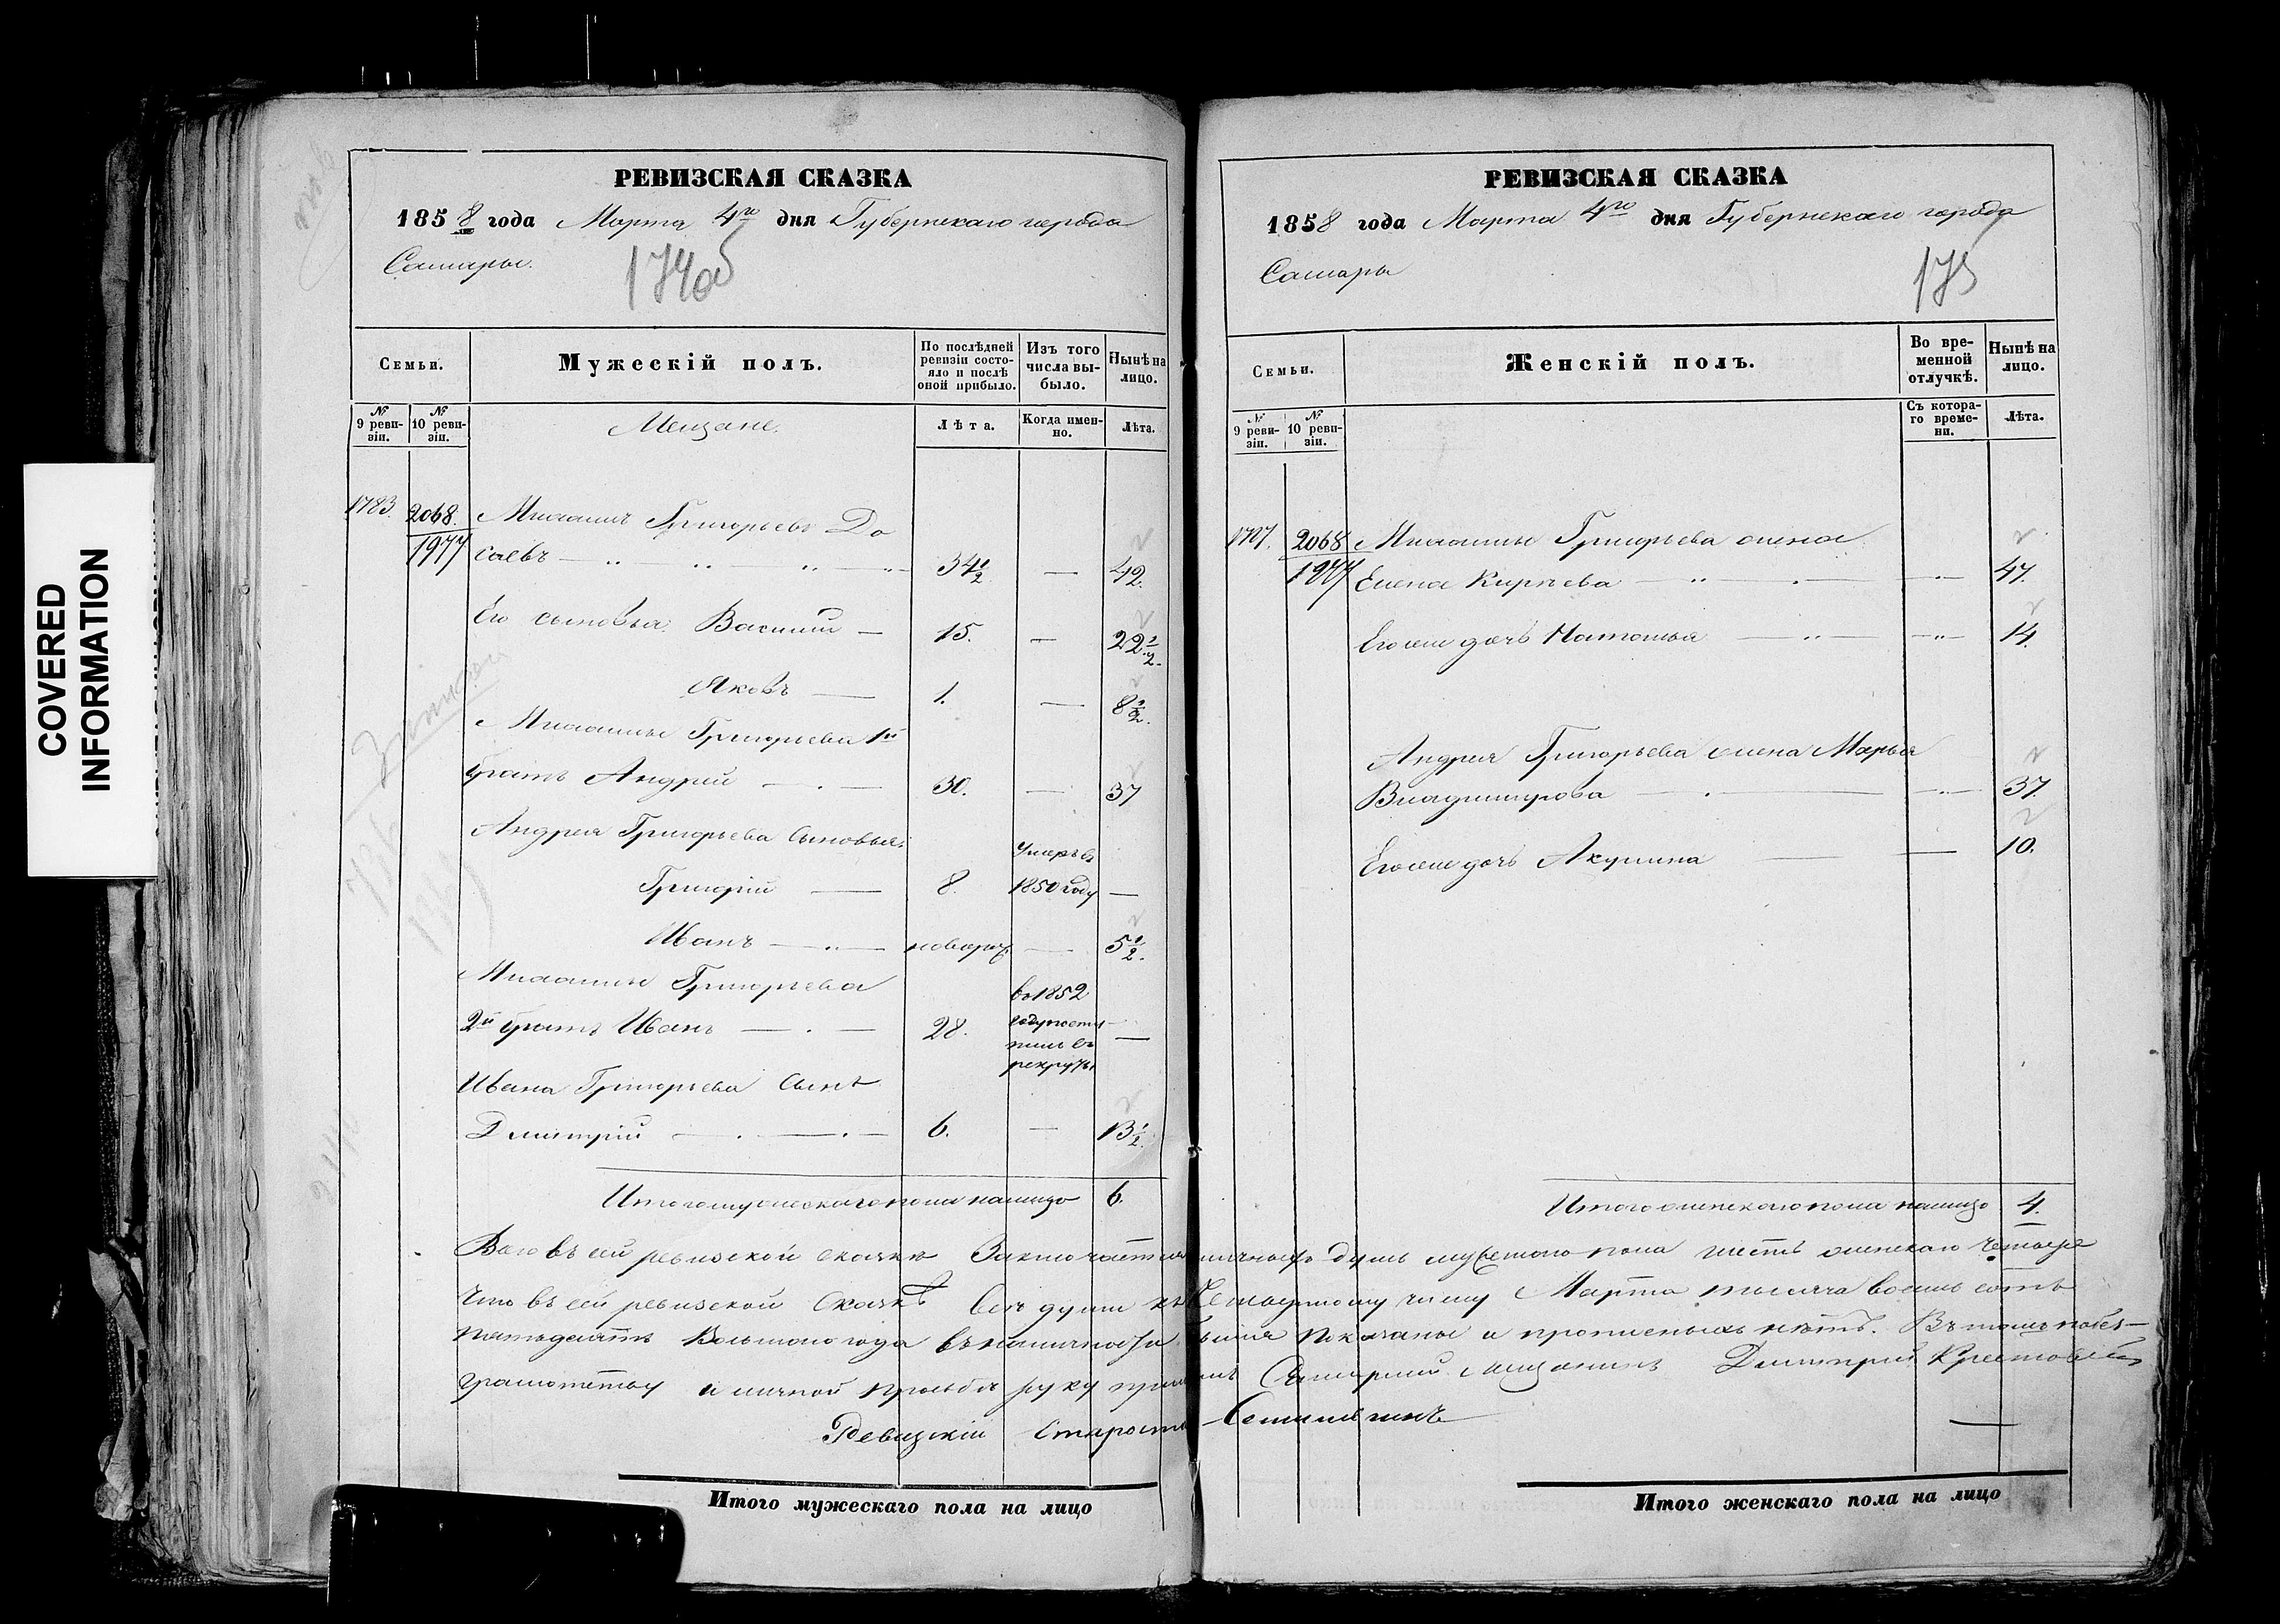 COVERED
INFORMATION
РЕВИЗСКАЯ СКАЗКА
1858 года Марта 4го дня Губернскаго города
Самары.
174об
Семьи.
Мужескій полъ.
По послѣдней ревизіи состояло и послѣ оной прибыло.
Изъ того числа выбыло.
Нынѣ на лицо.
№ 9 ревизіи.
№ 10 ревизіи.
Мещане.
Лѣта.
Когда именно.
Лѣта.
1783. 2068. Григорьевъ До
1977 саевъ — 34½ — 42.
Его сыновья. Василий — 15. — 22½.
Яковъ — 1. — 8½.
Григорьева 1й
братъ Андрей — 30. — 37
Андрея Григорьева сыновья:
Григорій — 8. умеръ въ 1850 году —
Иванъ — новорож. — 5½.
Григорьева
2й братъ Иванъ — 28. въ 1852 году поступилъ въ рекруты —
Ивана Григорьева сынъ
Дмитрій — 6. — 13½.
Итого мужескаго пола налицо 6.
РЕВИЗСКАЯ СКАЗКА
1858 года Марта 4го дня Губернскаго города
Самары
175
Семьи.
Женскій полъ.
Во временной отлучкѣ.
Нынѣ на лицо.
№ 9 ревизіи.
№ 10 ревизіи.
Съ котораго времени.
Лѣта.
2068 Григорьева жена
1977 Елена — 47.
Его же дочь Наталья — 14.
Андрея Григорьева жена Марья
Владимирова — 37.
Его же дочь Акулина — 10.
Итого женскаго пола налицо 4.
Всего въ сей ревизской сказкѣ заключается наличныхъ душъ мужескаго пола шесть женскаго четыре
Что въ сей ревизской сказкѣ все души къ четвертому числу Марта тысяча восемь сотъ
пятьдесятъ восьмого года въ наличности показаны и прописныхъ нѣтъ. Въ томъ по без-
грамотству и личной просьбѣ руку Самарский мещанинъ Дмитрий
Ревизскій Староста
Итого мужескаго пола на лицо
Итого женскаго пола на лицо